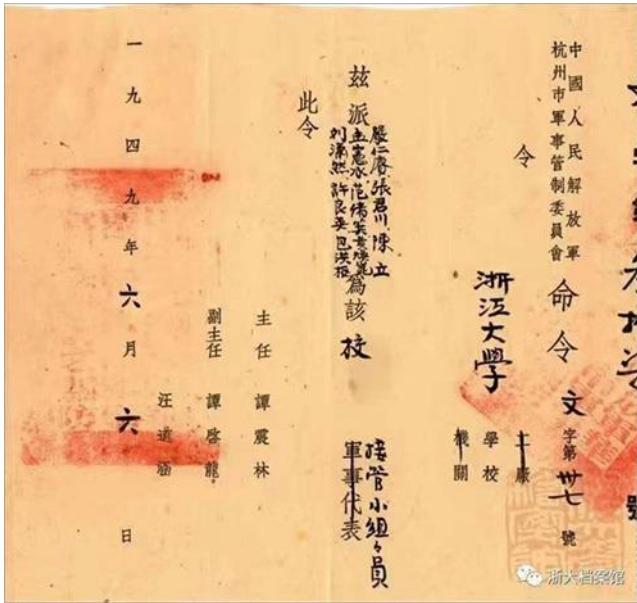 中國人民解放軍
杭州市軍事管制委員會
命令
文字第卅七號
令
浙江大學
工廠
學校
機關
茲派
嚴仁賡張君川陳立
孟憲承范緒箕黃煥焜
刘瀟然許良英包洪樞
為該校
接管小組組員
軍事代表
此令
主任 譚震林
副主任 譚啓龍
汪道涵
一九四九年六月六日
浙大档案馆